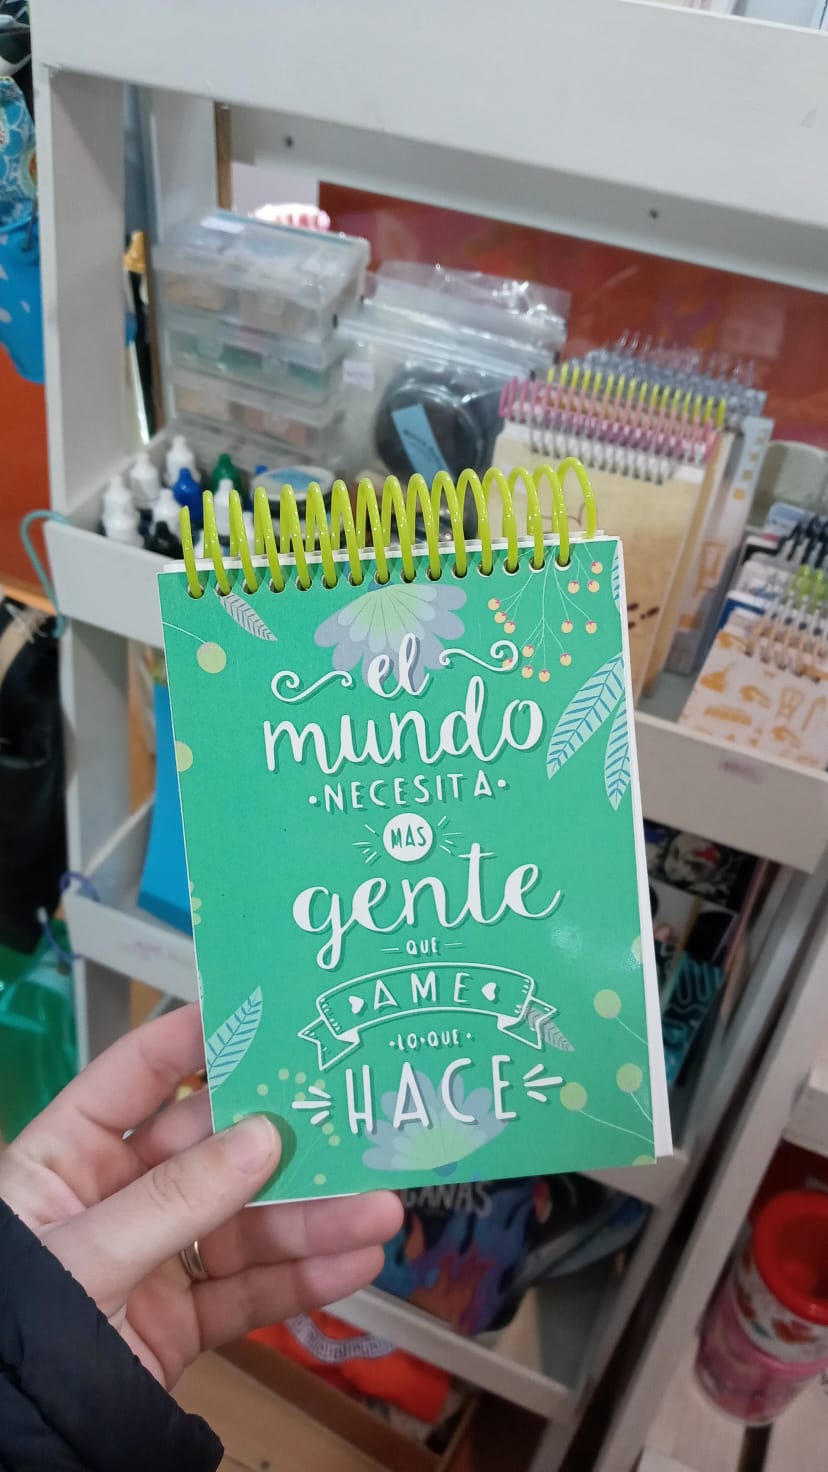 el
mundo
•NECESITA•
MAS
gente
QUE
AME
•LO•QUE•
HACE
GANAS